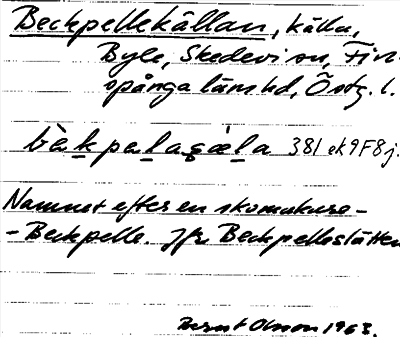 Beckpellekällan, källa,
Byle, Skedevi sn, Fin-
spånga länshd, Östg. l.
bèkpelaçæ̀la 381 ek 9F8j.
Namnet efter en skomakare -
- Beckpelle. Jfr Beckpellestätten
Bernt Olsson 1963.